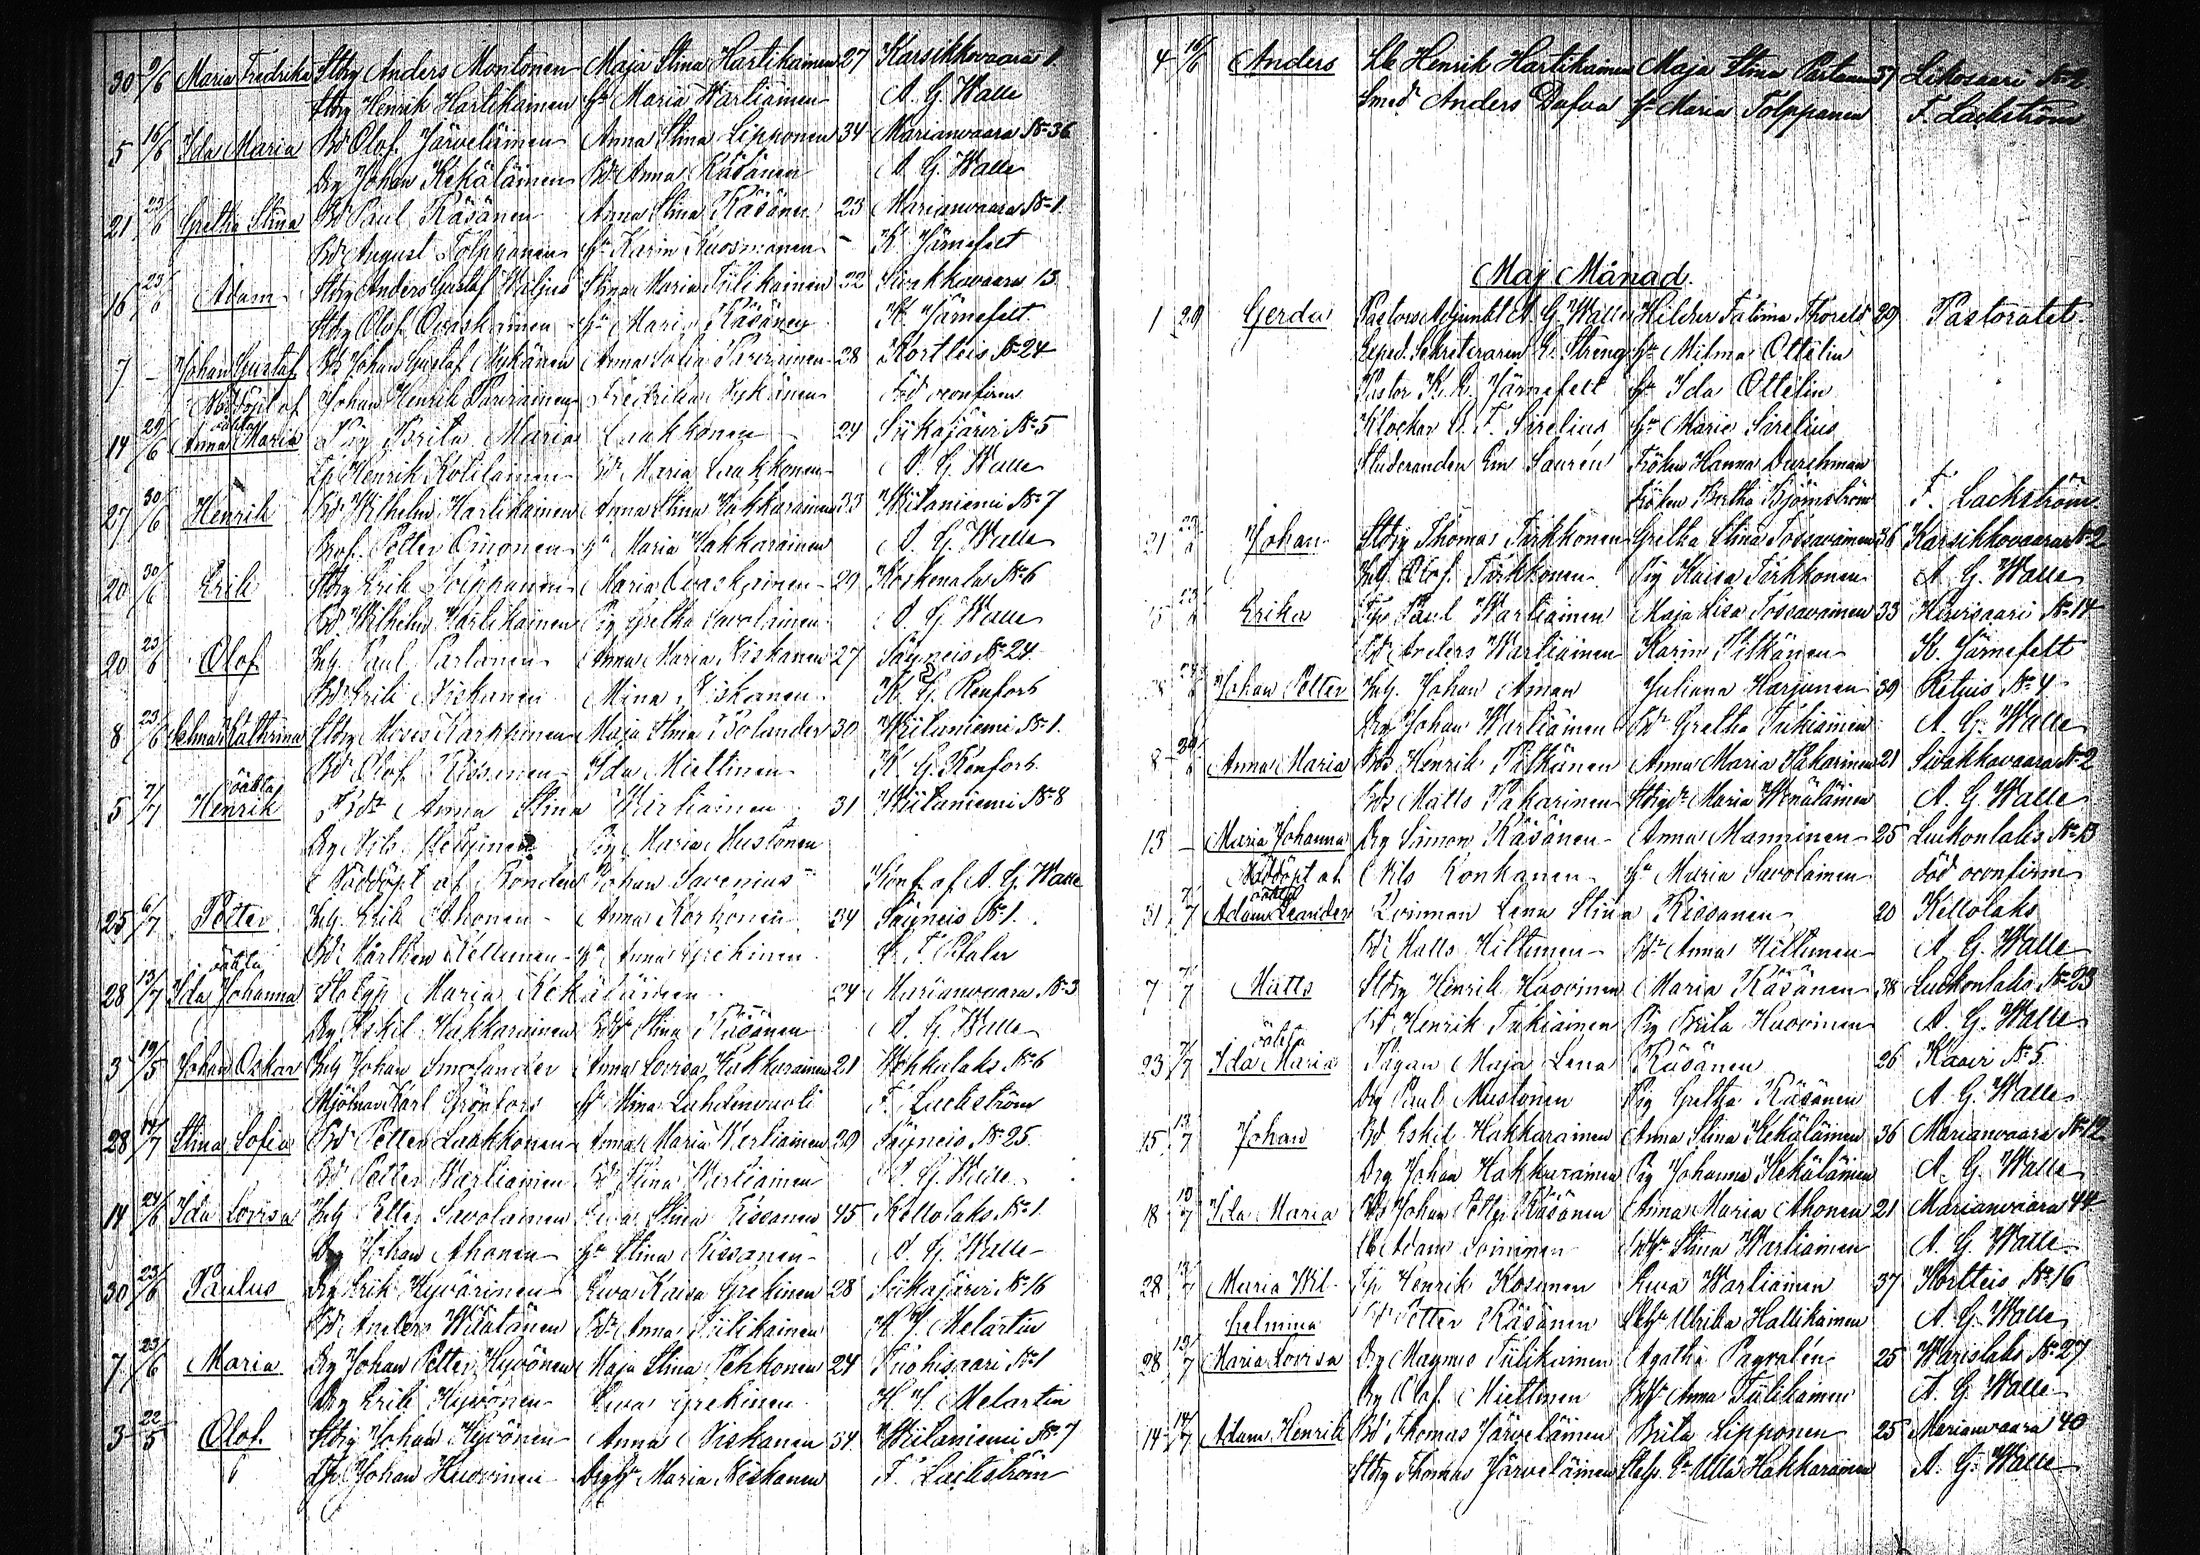 30 9/6 Maria Fredrika Stbg Anders Montonen Maja Stina Hartikainen 27 Karsikkovaara 1.
Stbg Henrik Hartikainen Hu Maria Wartiainen A. G. Walle
5 16/6 Ida Maria Bd Olof Järveläinen Anna Stina Lipponen 34 Marianvaara No 36
Drg Johan Kekäläinen Bdr Anna Räsänen A. G. Walle
21 23/6 Gretha Stina Bd Paul Räsänen Anna Stina Räsänen 23 Marianvaara No 1.
Bd August Tolppanen Hu Karin Kuosmanen K. Järnefelt
16 23/6 Adam Stbg Anders Gustaf Stina Maria Tiilikainen 32 Sivakkavaara 13
Stbg Olof Ovaskainen Hu Maria Räsänen K. Järnefelt
7 – Johan Gustaf Bd Johan Gustaf Nykänen Anna Sofia Parviainen 28 Kortteis No 24
Nöddöpt af Johan Henrik Parviainen Fredrika Nykänen död oconfirm
oäkta
14 29/6 Anna Maria Pig Brita Maria Laakkonen 24 Siikajärvi No 5
Tp Henrik Kotilainen Bdr Maria Laakkonen A. G. Walle
27 30/6 Henrik Bd Wilhelm Hartikainen Anna Stina Hakkarainen 33 Wiitaniemi No 7
Prof. Petter Oinonen Hu Maria Hakkarainen A. G. Walle
20 30/6 Erik Stbg Erik Tolppanen Maria Ovaskainen 29 Koskenala No 6
Bd Wilhelm Hartikainen Pig Gretha Savolainen A. G. Walle
20 23/6 Olof Inh Paul Partanen Anna Maria Niskanen 27 Säyneis No 24.
Bdr Erik Niskanen Mina Niskanen K. G. Renfors
8 23/6 Selma Kathrina Stbg Moses Karhinen Maja Stina Bolander 30 Wiitaniemi No 1.
Bd Olof Rissanen Ida Miettinen K. G. Renfors
oäkta
5 7/7 Henrik Bdr Anna Stina Wartiainen 31 Wiitaniemi No 8
Drg Nils Pig Maria Mustonen
Nöddöpt af Bonden Johan Savenius Konf. af A. G. Walle
25 6/7 Petter Inh Erik Ahonen Anna Korhonen 24 Säyneis No 1.
Bd Mårthen Kettunen Hu Anna Grekinen
oäkta
28 13/7 Ida Johanna Maria Kekäläinen 24 Marianvaara No 3
Drg Eskil Hakkarainen Stina Räsänen A. G. Walle
3 19/5 Johan Oskar Inh Johan Smolander Anna Lovisa Hakkarainen 21 No 6
Mjölnar Karl Grönfors Hu Mina F. Lackström
28 14/7 Stina Sofia Bd Petter Laakkonen Anna Maria Wartiainen 29 Säyneis No 25.
Bd Petter Wartiainen Bd Stina Wartiainen A. G. Walle
14 24/6 Ida Lovisa Inh Petter Savolainen Ewa Stina Rissanen 45 Kellolaks No 1.
Drg Johan Ahonen Hu Stina Rissanen A. G. Walle
30 23/6 Paulus Drg Erik Hyvärinen Ewa Kaisa Grekinen 28 Siikajärvi No 16
Bd Anders Wäätänen Bdr Anna Tiilikainen K. J. Melartin
7 23/6 Maria Drg Johan Petter Hyvönen Maja Stina Pehkonen 24 Tuohisaari No 1
Drg Erik Hyvönen Ewa Grekinen H. J. Melartin
3 22/5 Olof Stbg Johan Hyvönen Anna Niskanen 34 Wiitaniemi No 7
Tp Johan Huovinen Maria Niskanen F. Lackström
4 16/6 Anders Lb Henrik Hartikainen Maja Stina Partanen 37 Lekosaari No 2
Smed Anders Hu Maria Tolppanen F. Lackström
Maj Månad.
1 29 Gerda Pastors Adjunkt A. G. Walle Hilda Fatima Thoreld 29 Pastoratet.
Exped. Sekreteraren G. Streng Hu Milma Ottelin
Pastor K. G. Järnefelt Hu Ida Ottelin
Klockar C. F. Sirelius Hu Maria Sirelius
Studeranden Em Saurén Fröken Hanna Durchman
Fröken Bertha Björnström F. Lackström
21 Johan Stbg Thomas Tirkkonen Gretha Stina Tossavainen 36 Karsikkovaara No 2
Inh Olof Tirkkonen Pig Kaisa Tirkkonen A. G. Walle
Erika Tp Paul Wartiainen Maja Lisa Tossavainen 33 Hirvisaari No 14
Bd Anders Wartiainen Karin Pitkänen K. Järnefelt
Johan Petter Inh Johan Aman Juliana Harjunen 39 Retuis No 4
Drg Johan Wartiainen Bdr Gretha Tukiainen A. G. Walle
8 Anna Maria Bds Henrik Pitkänen Anna Maria Pakarinen 21 Sivakkavaara No 2
Bds Matts Pakarinen Stbgdr Maria Wenäläinen A. G. Walle
13 – Maria Johanna Drg Simon Räsänen Anna Manninen 25 Luikonlaks No 13
Nöddöpt af Nils Konkanen Hu Maria Savolainen död oconfirm
oäkta
31 7/7 Adam Leander Qvinnan Lena Stina Rissanen 20 Kellolaks
Bdr Matts Hiltunen Bdr Anna Hiltunen A. G. Walle
7 7/7 Matts Stbg Henrik Huovinen Maria Räsänen 38 Luikonlaks No 23
Bd Henrik Tukiainen Pig Brita Huovinen A. G. Walle
oäkta
23 7/7 Ida Maria Pigan Maja Lena Räsänen 26 Kaavi No 5
Drg Paul Mustonen Pig Gretha Räsänen A. G. Walle
15 13/7 Johan Bd Eskil Hakkarainen Anna Stina Kekäläinen 36 Marianvaara No 12
Drg Johan Hakkarainen Pig Johanna Kekäläinen A. G. Walle
18 13/7 Ida Maria Bds Johan Petter Räsänen Anna Maria Ahonen 21 Marianvaara 44
Lb Adam Soininen Stina Wartiainen A. G. Walle
28 Maria Wil- Tp Henrik Kosunen Ewa Wartiainen 37 Kortteis No 16
helmina Bd Petter Räsänen Ulrika Hallikainen A. G. Walle
28 13/7 Maria Lovisa Drg Magnus Tiilikainen Agatha Pagvalén 25 Warislaks No 27
Drg Olof Miettinen Anna Tiilikainen A. G. Walle
14 14/7 Adam Henrik Bd Thomas Järveläinen Brita Lipponen 25 Marianvaara 40
Stbg Thomas Järveläinen Ulla Hakkarainen A. G. Walle